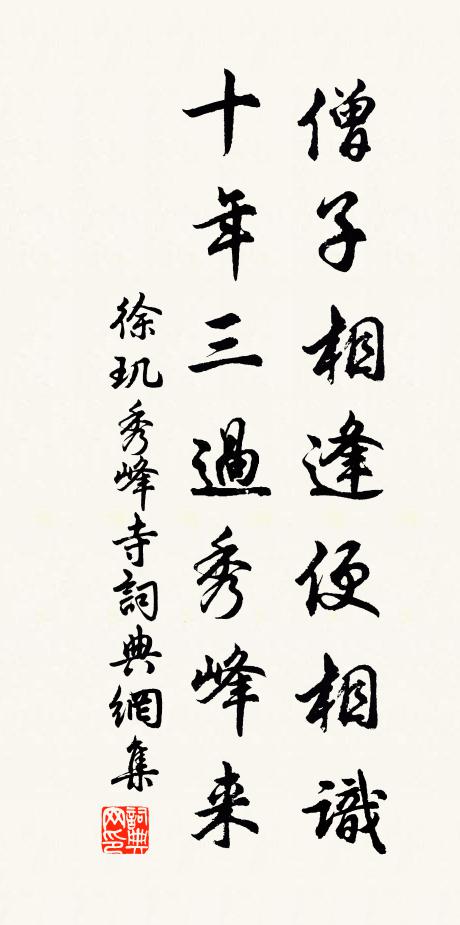 僧子相逢便相識
十年三過秀峰来
徐玑秀峰寺詞典網集
詞典网印